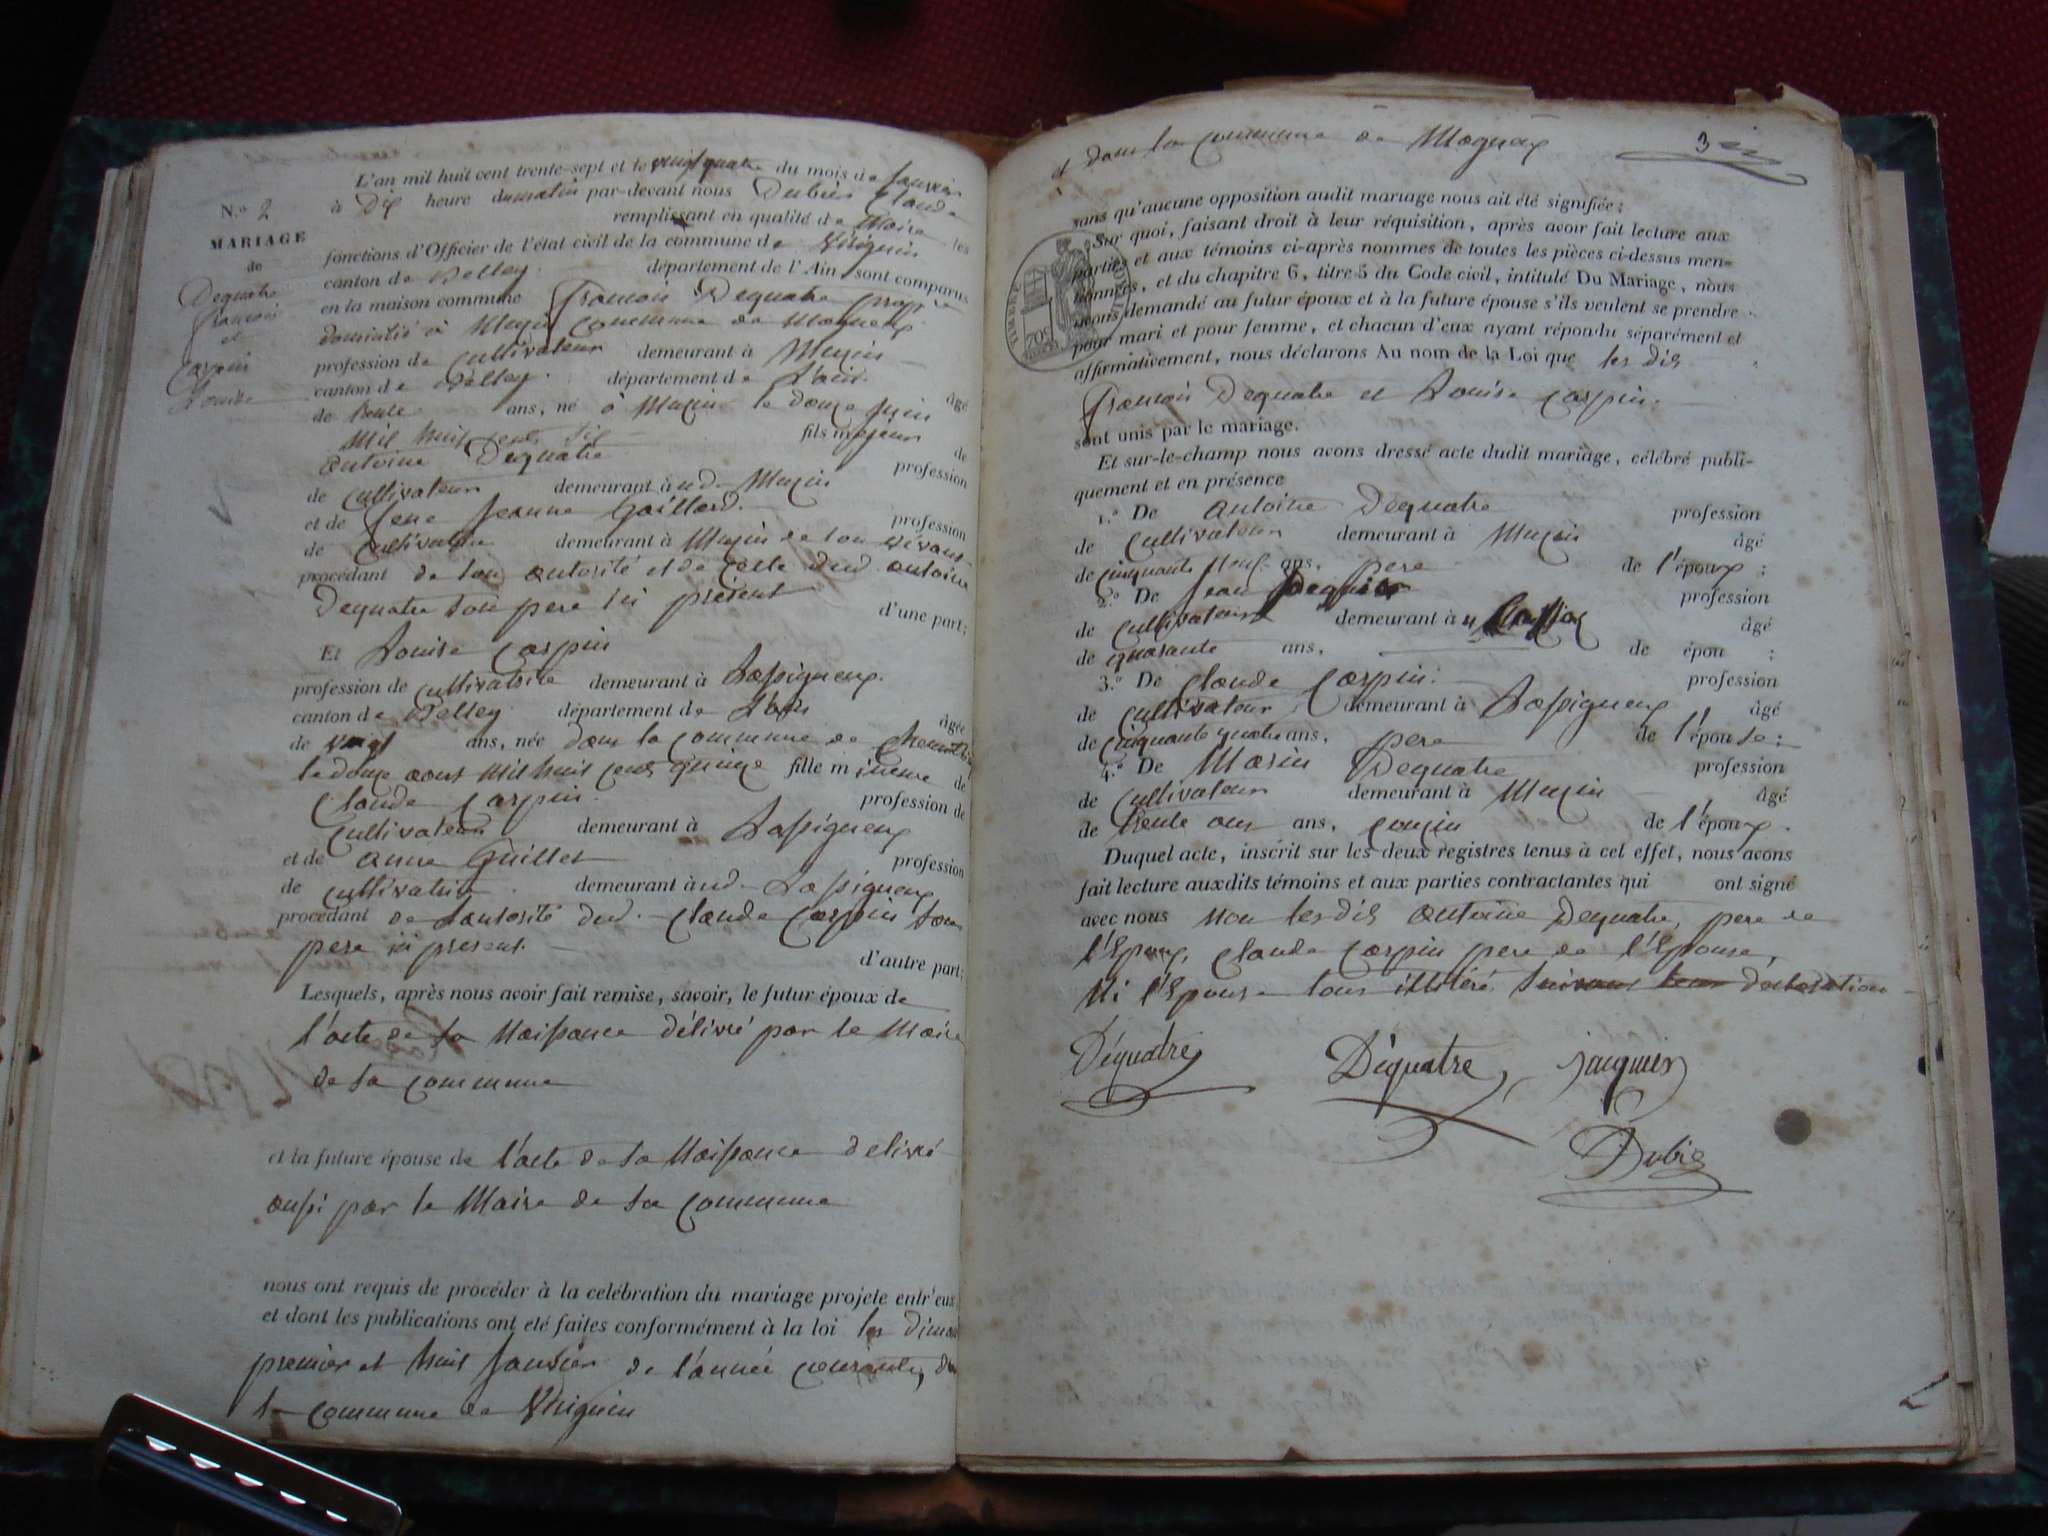 L'an mil huit cent trente-sept et le vingt quatre du mois de Janvier
N.o 2
à Dix heure du matin par-devant nous Dubier Claude
remplissant en qualité de Maire les
MARIAGE
fonctions d'Officier de l'état civil de la commune de Virignin
de
canton de Belley département de l'Ain sont comparus
Dequatre
en la maison commune François Dequatre
françois
domicilié à Muzin Commune de Magnieu
et
profession de Cultivateur demeurant à Muzin
Carpin
canton de Belley département de L'ain âgé
Louise
de trente ans, né à Muzin le douze juin
mil huit cent six fils majeur de
antoine Dequatre profession
de Cultivateur demeurant à ud. Muzin
et de feue Jeanne Gaillard profession
de Cultivatrice demeurant à Muzin de son vivant
procédant de son autorité et de celle dud. antoine
Dequatre son pere ici présent d'une part;
Et Louise Carpin
profession de cultivatrice demeurant à Lassigneux
canton de Belley département de L'ain âgée
de vingt ans, née dans la commune de
le douze aout mil huit cent quinze fille mineure de
Claude Carpin profession de
Cultivateur demeurant à Lassigneux
et de anne Guillet profession
de cultivatrice demeurant à ud. Lassigneux
procédant de Lautorité dud. Claude Carpin son
pere ici présent d'autre part;
Lesquels, après nous avoir fait remise, savoir, le futur époux de
l'acte de sa Naissance délivré par le Maire
de sa commune
et la future épouse de l'acte de sa Naissance délivré
aussi par le Maire de sa commune
nous ont requis de procéder à la celébration du mariage projeté entr'eux
et dont les publications ont été faites conformément à la loi les
premier et huit Janvier de l'année courante,
commune de Virignin
et dans la commune de Magnieu
3
sans qu'aucune opposition audit mariage nous ait été signifiée;
Sur quoi, faisant droit à leur réquisition, après avoir fait lecture aux
parties et aux témoins ci-après nommés de toutes les pièces ci-dessus men-
tionnées, et du chapitre 6, titre 5 du Code civil, intitulé Du Mariage, nous
avons demandé au futur époux et à la future épouse s'ils veulent se prendre
pour mari et pour femme, et chacun d'eux ayant répondu séparément et
affirmativement, nous déclarons Au nom de la Loi que les dis
TIMBRE
70c
François Dequatre et Louise Carpin
sont unis par le mariage.
Et sur-le-champ nous avons dressé acte dudit mariage, célébré publi-
quement et en présence
1.o De antoine Dequatre profession
de Cultivateur demeurant à Muzin âgé
de cinquante neuf ans, pere de l'époux ;
2.o De Jean profession
de cultivateur demeurant à âgé
de quarante ans, de épou ;
3.o De Claude Carpin profession
de cultivateur demeurant à Lassigneux âgé
de cinquante quatre ans, pere de l'épouse ;
4.o De Marin Dequatre profession
de cultivateur demeurant à Muzin âgé
de trente ans, cousin de l'époux.
Duquel acte, inscrit sur les deux registres tenus à cet effet, nous avons
fait lecture auxdits témoins et aux parties contractantes qui ont signé
avec nous non lesdis antoine Dequatre, pere de
l'Epoux, Claude Carpin pere de l'Epouse,
Ni l'Epouse tous illitéré suivant leur déclaration
Déquatre Déquatre jacquier
Dubie